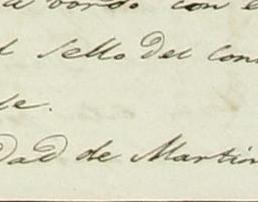 a bordo con e
l sello del con
de.
dad de Martin